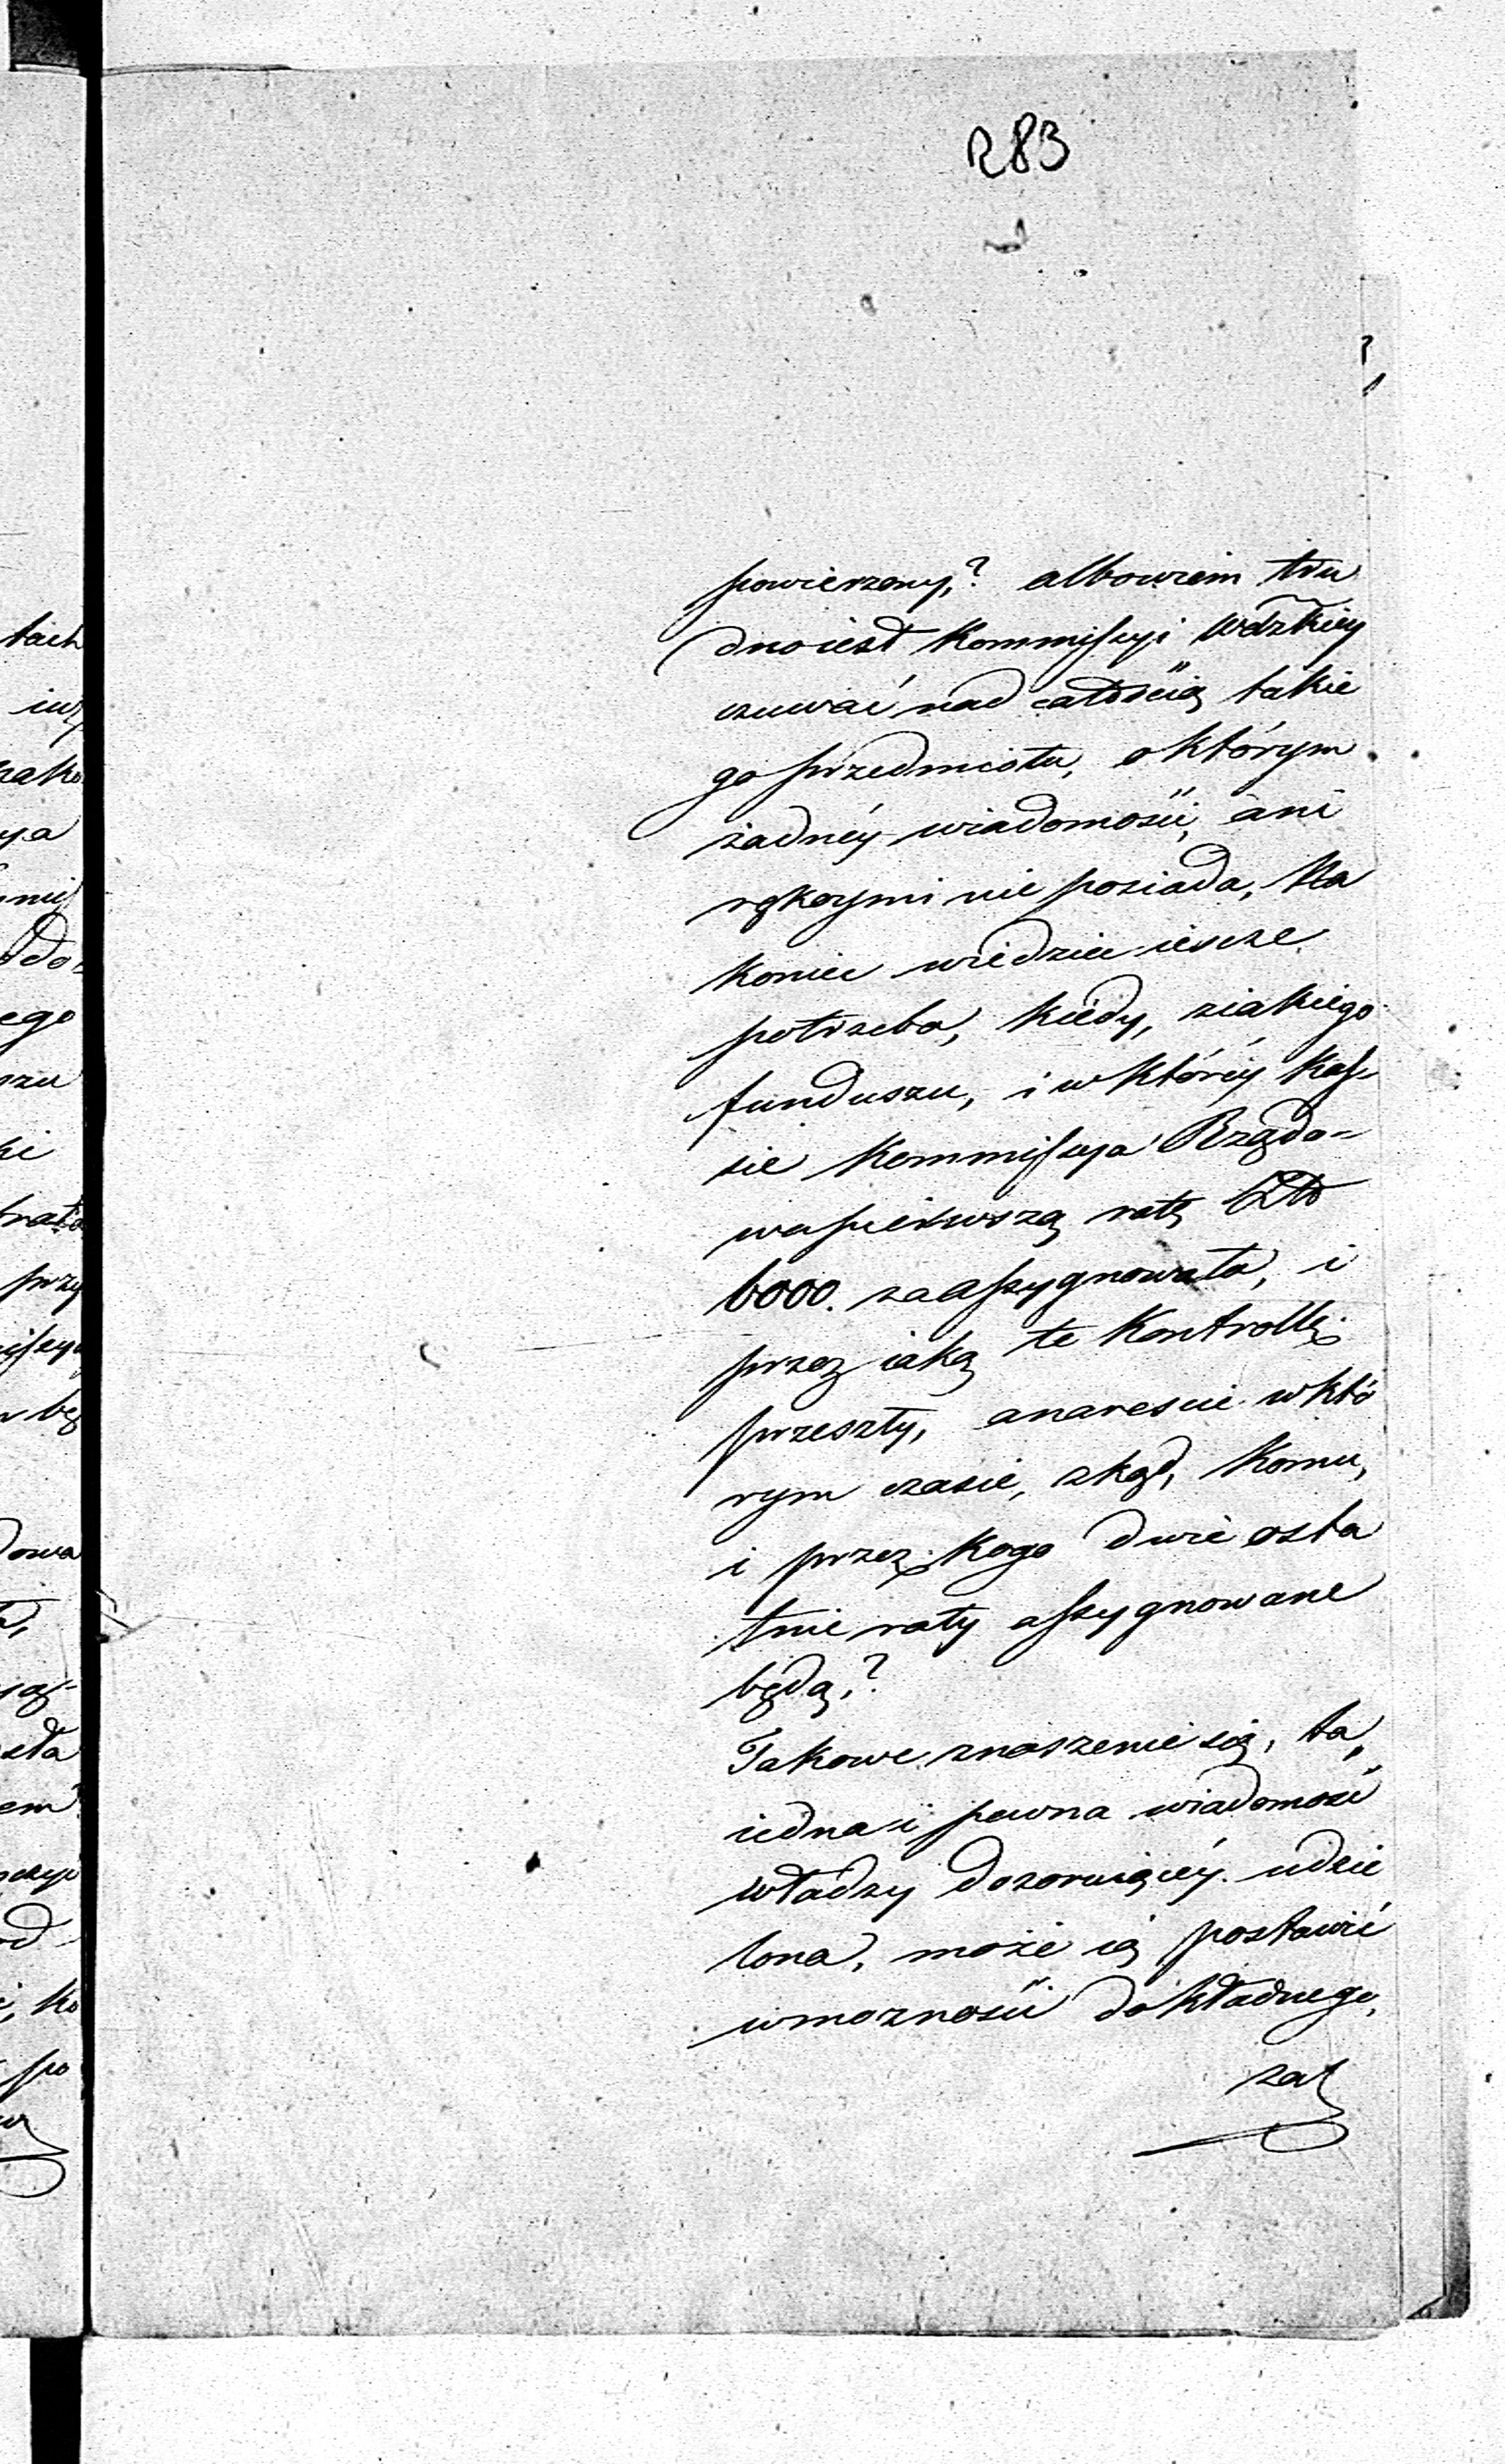 283
powierzony,? albowiem tru
dno iest Kommissyi Wdzkiey
czuwać nad całością takie
go przedmiotu, o którym
żadnéy wiadomości, ani
rękoymi nie posiada, Na
koniec wiedzieć ieszcze
potrzeba, kiedy, z iakiego
funduszu, i w któréy Kas-
sie Kommissya Rządo-
wa pierwszą ratę Złp
6000. zaassygnowała, i
przez iaką te Kontrollę
przeszły, a nareście w któ
rym czasie, zkąd, komu,
i przez kogo dwie osta
tnie raty assygnowane
będą,?
Takowe znoszenie się, ta
iedna i pewna wiadomość
władzy dozoruiącéy udzie
lona, może ią postawić
w możności dokładnego,
za
tach
iuż
ya
ego
szu
ki
przy
dowa
sła
em
od
ko
po